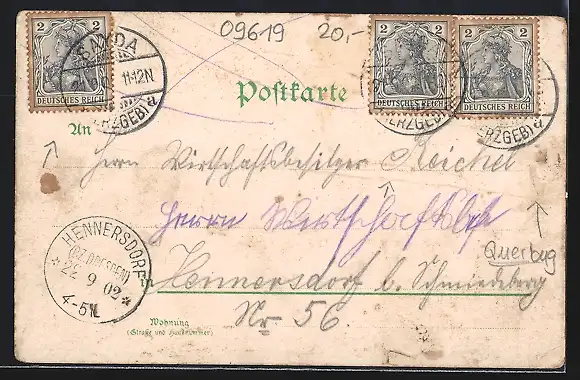 09619 20,-
SAYDA
11-12N
(ERZGEB) a
2
DEUTSCHES REICH
2
DEUTSCHES REICH
2
DEUTSCHES REICH
(ERZGEB) a
(ERZGEB) a
Postkarte
An
Herrn Wirtschaftsbesitzer Reichel
Herrn Wirtschaftsbes
Querbug
in Hennersdorf b. Schmiedeberg
Nr. 56.
HENNERSDORF
(BZ. DRESDEN)
* 22 9 02 *
4-5N.
Wohnung
(Straße und Hausnummer)